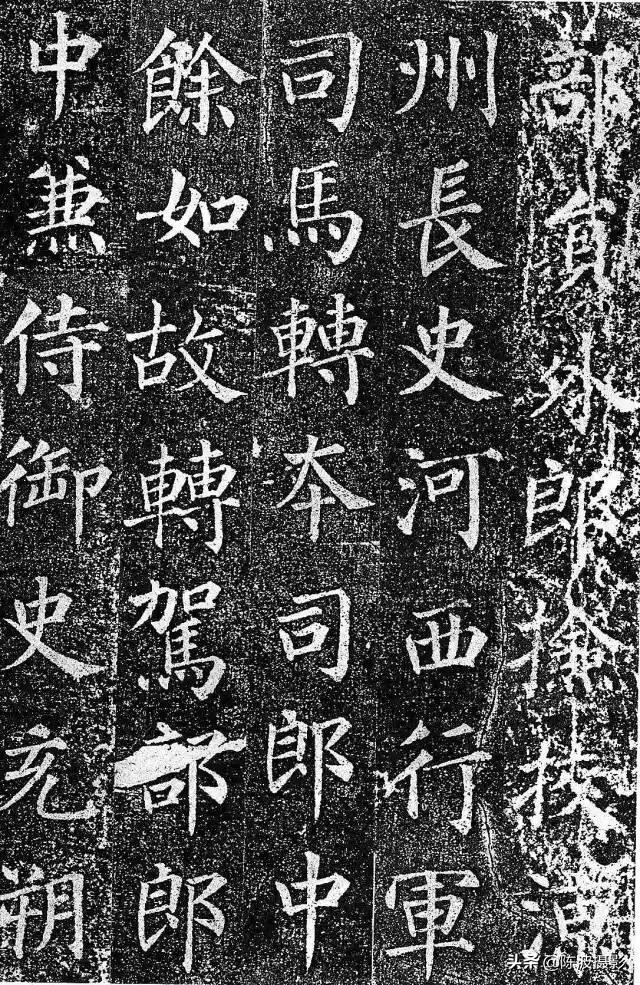 部貟外郎撿挍涼
州長史河西行軍
司馬轉夲司郎中
餘如故轉駕部郎
中兼侍御史充朔
头条 @陈波摄影